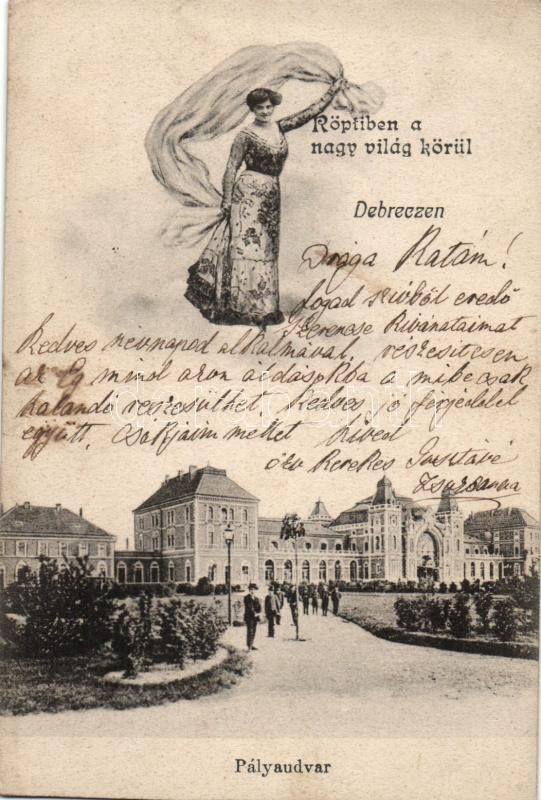 Röptiben a
nagy világ körül
Debreczen
Drága Katám!
fogad szivből eredő
Szerencse Kivánataimat
Kedves nevnapod alkalmával, részesitsen
az Ég mind azon áldásokba a mibe csak
halandó részesülhet Kedves jó férjeddel
együtt, csókjaim mellet hived
özv Kerekes Gusztávé
Zsuzsanna
Pályaudvar